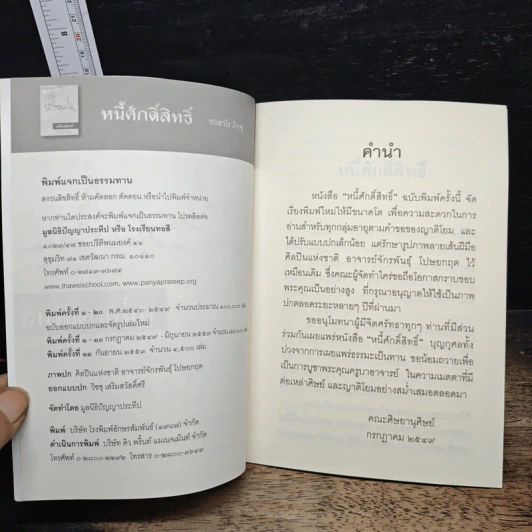 หนี้ศักดิ์สิทธิ์
ชยสาโร ภิกขุ
พิมพ์แจกเป็นธรรมทาน
สงวนลิขสิทธิ์ ห้ามคัดลอก ตัดตอน หรือนำไปพิมพ์จำหน่าย
หากท่านใดประสงค์จะพิมพ์แจกเป็นธรรมทาน โปรดติดต่อ
มูลนิธิปัญญาประทีป หรือ โรงเรียนทอสี
๑๐๒๓/๔๗ ซอยปรีดีพนมยงค์ ๔๑
สุขุมวิท ๗๑ เขตวัฒนา กทม. ๑๐๑๑๐
โทรศัพท์ ๐-๒๗๑๓-๓๖๗๔
www.thawsischool.com, www.panyaprateep.org
พิมพ์ครั้งที่ ๑ - ๒๐ พ.ศ.๒๕๔๐- ๒๕๔๙ จำนวนประมาณ ๑๐๐,๐๐๐ เล่ม
ฉบับออกแบบปกและจัดรูปเล่มใหม่
พิมพ์ครั้งที่ ๑ - ๑๐ กรกฎาคม ๒๕๔๙ - มิถุนายน ๒๕๕๓ จำนวน
พิมพ์ครั้งที่ ๑๑ กันยายน ๒๕๕๓ จำนวน ๔,๕๐๐ เล่ม
ภาพปก ศิลปินแห่งชาติ อาจารย์จักรพันธุ์ โปษยกฤต
ออกแบบปก วิชชุ เสริมสวัสดิ์ศรี
จัดทำโดย มูลนิธิปัญญาประทีป
พิมพ์ บริษัท โรงพิมพ์อักษรสัมพันธ์ (๑๙๘๗) จำกัด
ดำเนินการพิมพ์ บริษัท คิว พริ้นท์ แมเนจเม้นท์ จำกัด
โทรศัพท์ ๐-๒๘๐๐-๒๒๙๒ โทรสาร ๐-๒๘๐๐-๓๖๔๙
คำนำ
หนังสือ "หนี้ศักดิ์สิทธิ์" ฉบับพิมพ์ครั้งนี้ จัด
เรียงพิมพ์ใหม่ให้มีขนาดโต เพื่อความสะดวกในการ
อ่านสำหรับทุกกลุ่มอายุตามคำขอของญาติโยม และ
ได้ปรับแบบปกเล็กน้อย แต่รักษารูปภาพลายเส้นฝีมือ
ศิลปินแห่งชาติ อาจารย์จักรพันธุ์ โปษยกฤต ไว้
เหมือนเดิม ซึ่งคณะผู้จัดทำใคร่ขอถือโอกาสกราบขอบ
พระคุณเป็นอย่างสูง ที่กรุณาอนุญาตให้ใช้เป็นภาพ
ปกตลอดระยะหลายๆ ปีที่ผ่านมา
ขออนุโมทนาผู้มีจิตศรัทธาทุกๆ ท่านที่มีส่วน
ร่วมกันเผยแพร่หนังสือ "หนี้ศักดิ์สิทธิ์" บุญกุศลทั้ง
ปวงจากการเผยแพร่ธรรมะเป็นทาน ขอน้อมถวายเพื่อ
เป็นการบูชาพระคุณครูบาอาจารย์ ในความเมตตาที่มี
ต่อเหล่าศิษย์ และญาติโยมอย่างสม่ำเสมอตลอดมา
คณะศิษยานุศิษย์
กรกฎาคม ๒๕๔๙